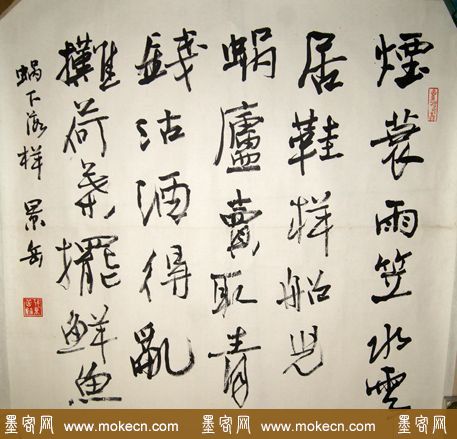 煙蓑雨笠水雲
居鞋样船兒
蝸廬賣取青
錢沽酒得亂
攤荷葉擺鮮魚
蝸下落样 景岳
墨客网 www.mokecn.com 墨客网 www.mokecn.com 墨客网